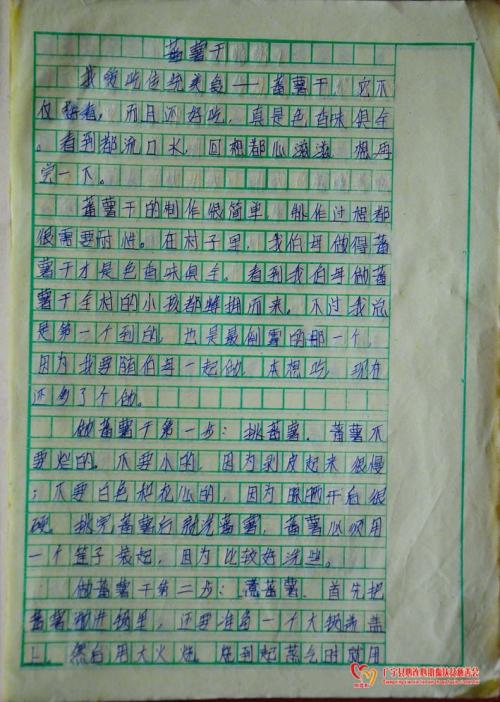 蕃薯干
我家吃传统美食——蕃薯干，它不
仅好看，而且还好吃，真是色香味俱全
。看到都流口水，回想都心滋滋，想再
尝一下。
蕃薯干的制作很简单，制作过程都
很需要耐性。在村子里，我伯母做得蕃
薯干才是色香味俱全，看到我伯母做蕃
薯干全村的小孩都蜂拥而来，不过我总
是第一个到的，也是最倒霉的那一个，
因为我要随伯母一起做，本想吃，现在
还多了个做。
做蕃薯干第一步：挑蕃薯，蕃薯不
要烂的，不要小的，因为剥皮起来很慢
；不要白色和花心的，因为晒干后很
硬。挑完蕃薯后就洗蕃薯，蕃薯必须用
一个篮子装起，因为比较好洗些。
做蕃薯干第二步：煮蕃薯，首先把
蕃薯放进锅里，还要准备一个大锅盖盖
上，然后用大火烧，烧到起蒸气时就用